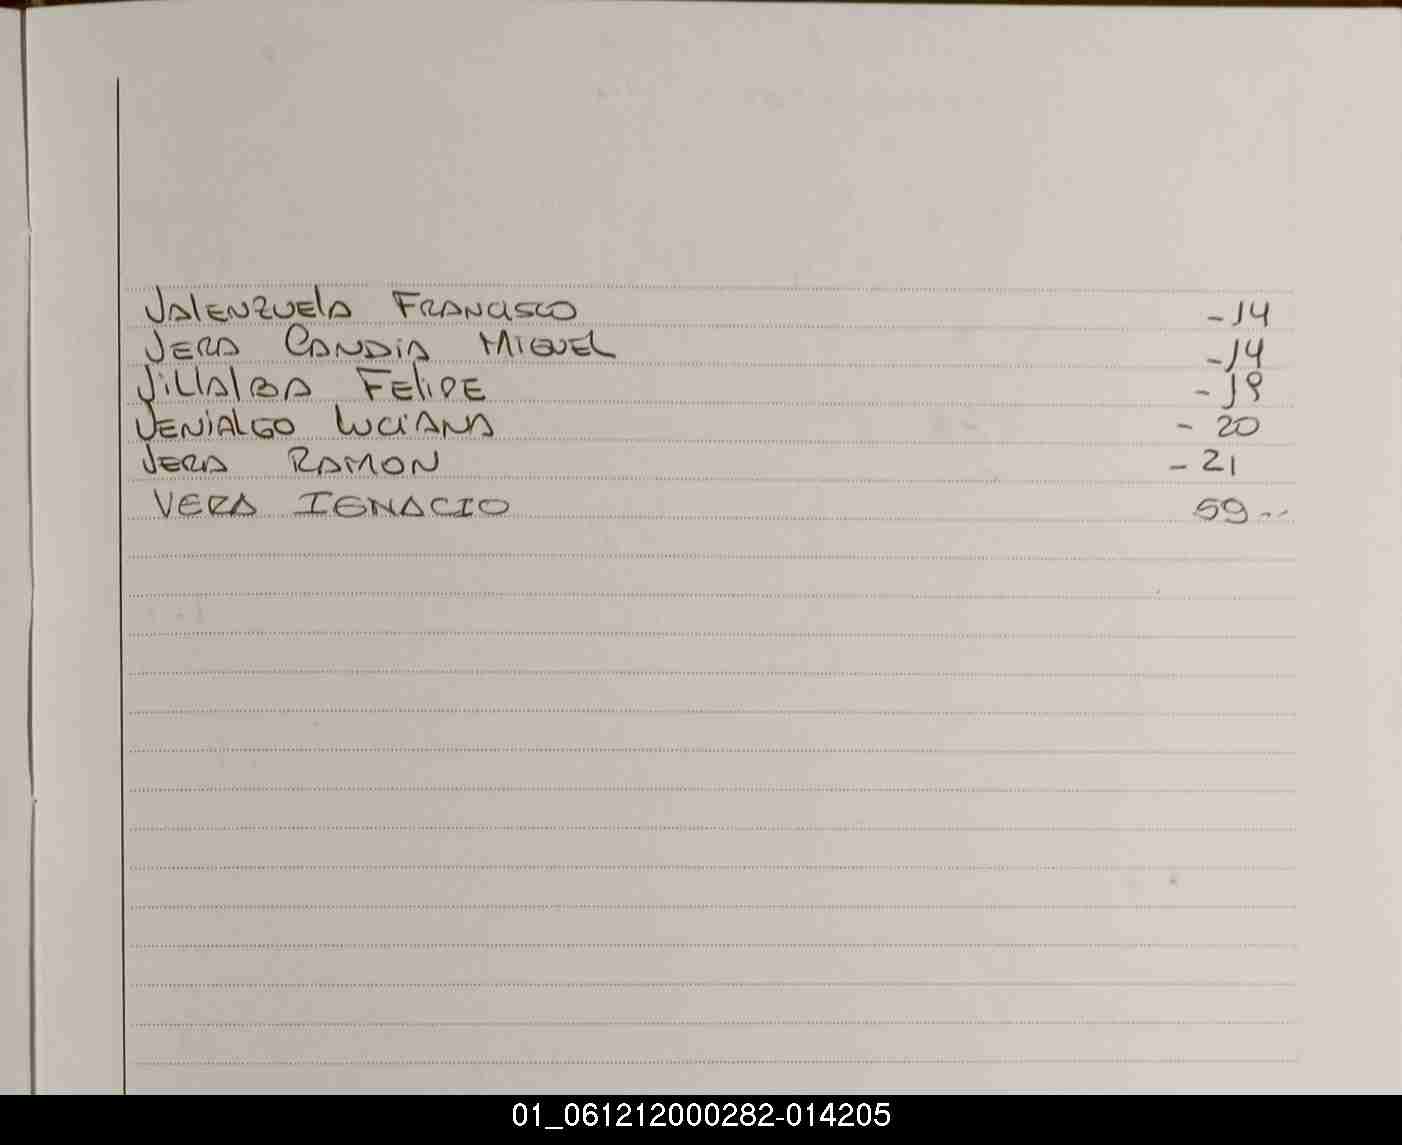 Valenzuela Francisco -14
Vera Candia Miguel -14
Villalba Felipe -19
Venialgo Luciana - 20
Vera Ramon - 21
VERA IGNACIO 59--
01_061212000282-014205